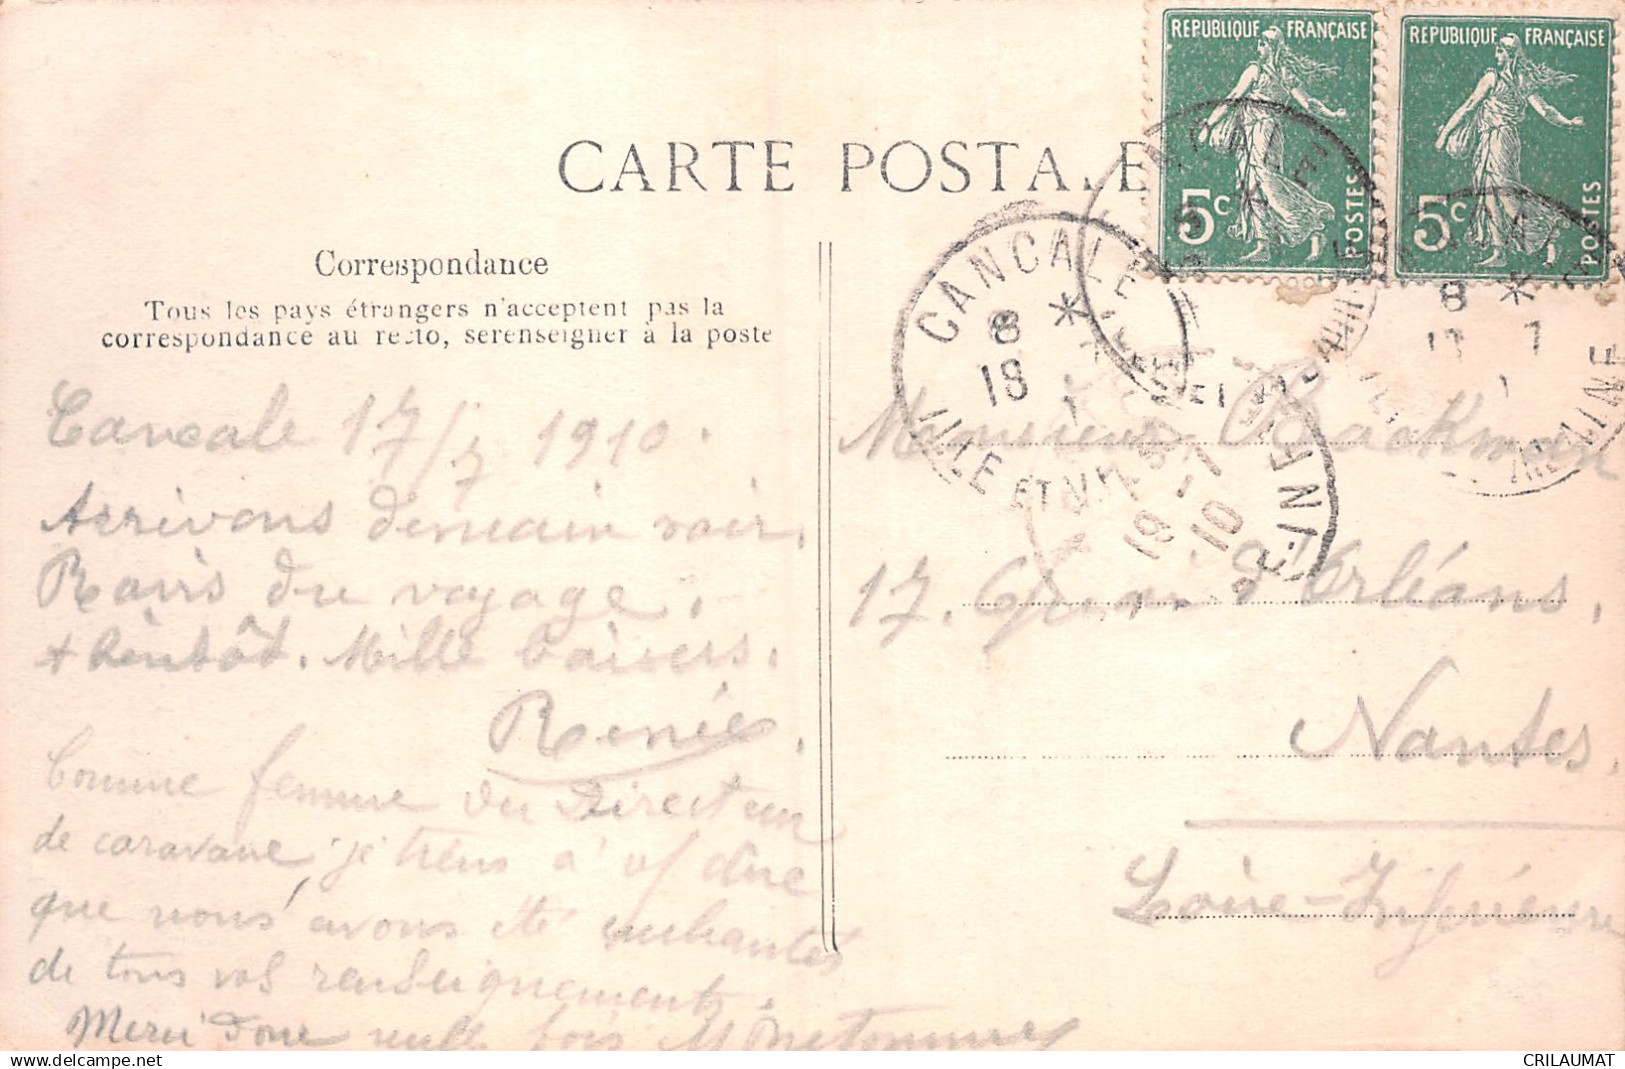 REPUBLIQUE FRANÇAISE
5c
POSTES
REPUBLIQUE FRANÇAISE
5c
POSTES
CARTE POSTALE
CANCALE
8
18
ILLE ET VILAINE
19 - 7
10
Correspondance
Tous les pays étrangers n'acceptent pas la
correspondance au recto, se renseigner à la poste
Cancale 17/7 1910.
Arrivons demain soir.
Ravis du voyage.
A bientôt. Mille baisers.
Renée.
Comme femme du Directeur
de caravane, je tiens à vs dire
que nous avons été enchantés
de tous vos renseignements.
Merci donc mille fois
Monsieur Brackman
17. Quai d'Orléans.
Nantes.
Loire-Inférieure
delcampe.net
CRILAUMAT